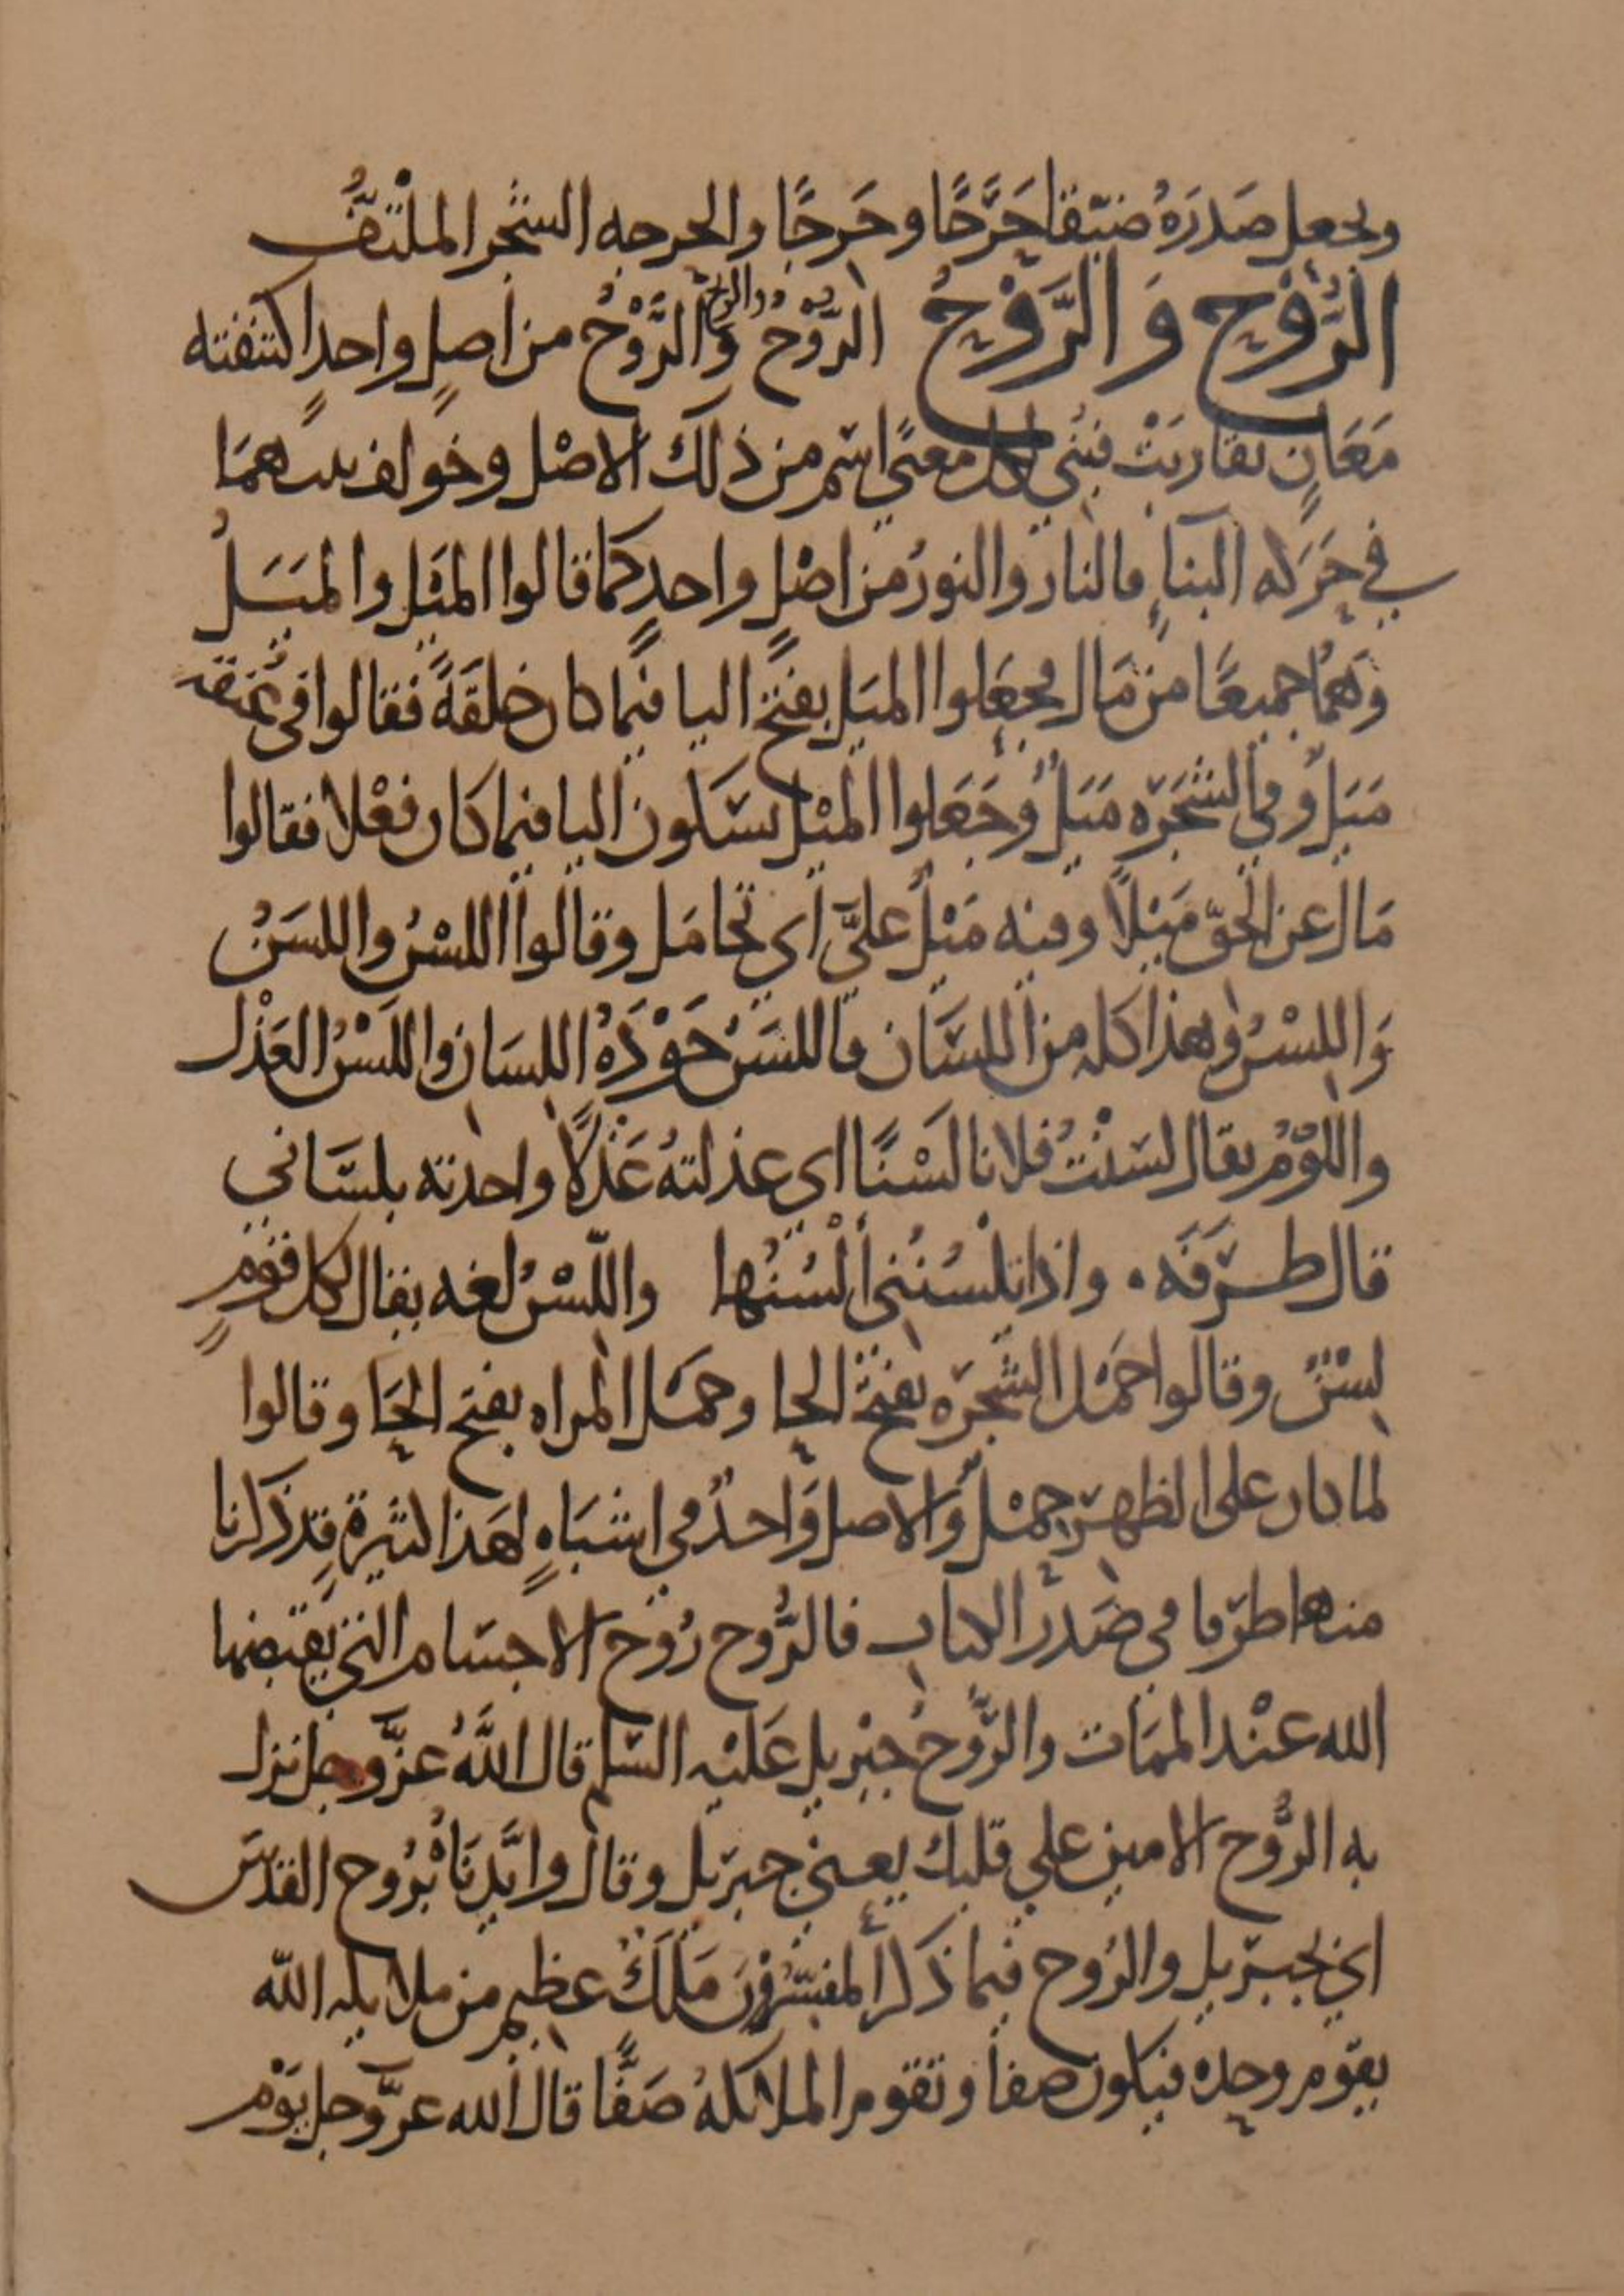 ويجعل صَدرَهُ ضيّقا حَرَّجًا وحَرجًا والحرجه الشجر الملْتفُّ
الرُّوْح وَ الرَّوْحُ الرّوْح والريح وَالرَّوْحُ من اصلٍ واحدٍ اكتنفته
مَعَانٍ تقاربَتْ فبُني لكل معنًى اسم من ذلك الاصْل وخولف بينهمَا
في حَرَكه البناءِ فالنار والنورُ من اصْلٍ واحدٍ كما قالوا المَيْل والمَيَلُ
وَهُمَا جميعًا من مَال فجعَلوا الميَل بفتح اليا فيما كان خلقَةً فقالوا في عُنقه
مَيَلٌ وفي الشجَرَه مَيَلٌ وجَعَلوا الميْل بسَكون اليا فيما كان فعْلا فقالوا
مَال عن الحقّ مَيْلاً وفيه مَيْلٌ عليَّ اي تحامَل وقالوا اللسْنُ واللسَنُ
وَاللِسْنُ وهذا كله من اللسَان فاللسَنُ جَوْدَهُ اللِسَان واللَسْنُ العَذْل
واللوْمُ يقال لسَنْتُ فلانا لَسْنًا اى عذلتهُ عَذْلاً واخذته بلسَاني
قال طرَفَه . واذا تلسُنُني ألْسُنُها واللّسْنُ لغه يقال لكل قوْمٍ
لِسْنٌ وقالوا حَمْل الشجَره بفتح الحا وحمَل المراه بفتح الحَا وقالوا
لما كان على الظهر حِمْلٌ والاصل وَاحدٌ في اشبَاهٍ لهَذا كثيرةٍ قد ذكرنا
منها طرفا في صَدْر الكتاب فالرُّوح رُوْح الاجسَام الذي يَقبضها
الله عنْد الممَات والرُّوحُ جبْريل عَليْه السّلم قال اللهُ عزَّ وجل نزل
به الرُّوح الامين علي قلبك يعني جبرَيل وقال وايَّدنَاهُ بُروح القدُس
اي بجبرَيل والرُوح فيما ذكر المفسِّرُوْنَ مَلَكٌ عظيم من ملايكه الله
يقوْم وحده فيكون صفا وتقوم الملايكهُ صَفًّا قال الله عزَّ وجل يَوْم